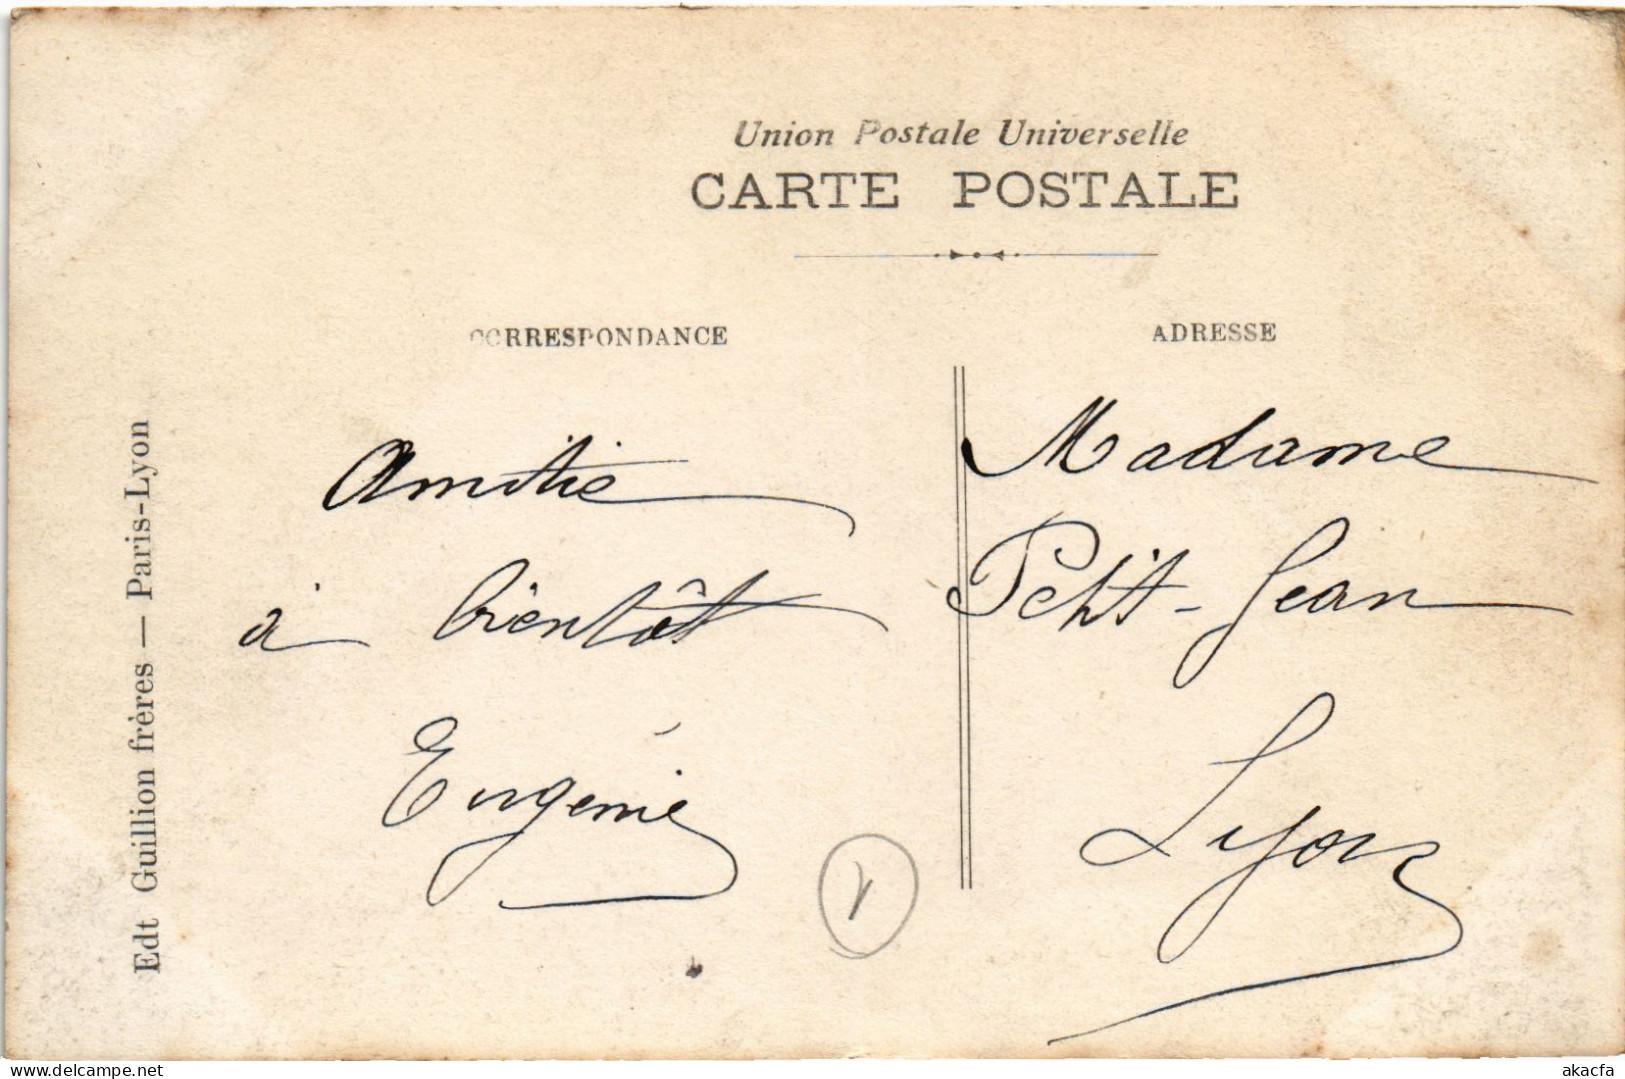 Union Postale Universelle
CARTE POSTALE
CORRESPONDANCE
ADRESSE
Amitié
à bientôt
Eugénie
Madame
Petit-Jean
Lyon
Edt Guillion frères — Paris-Lyon
akacfa